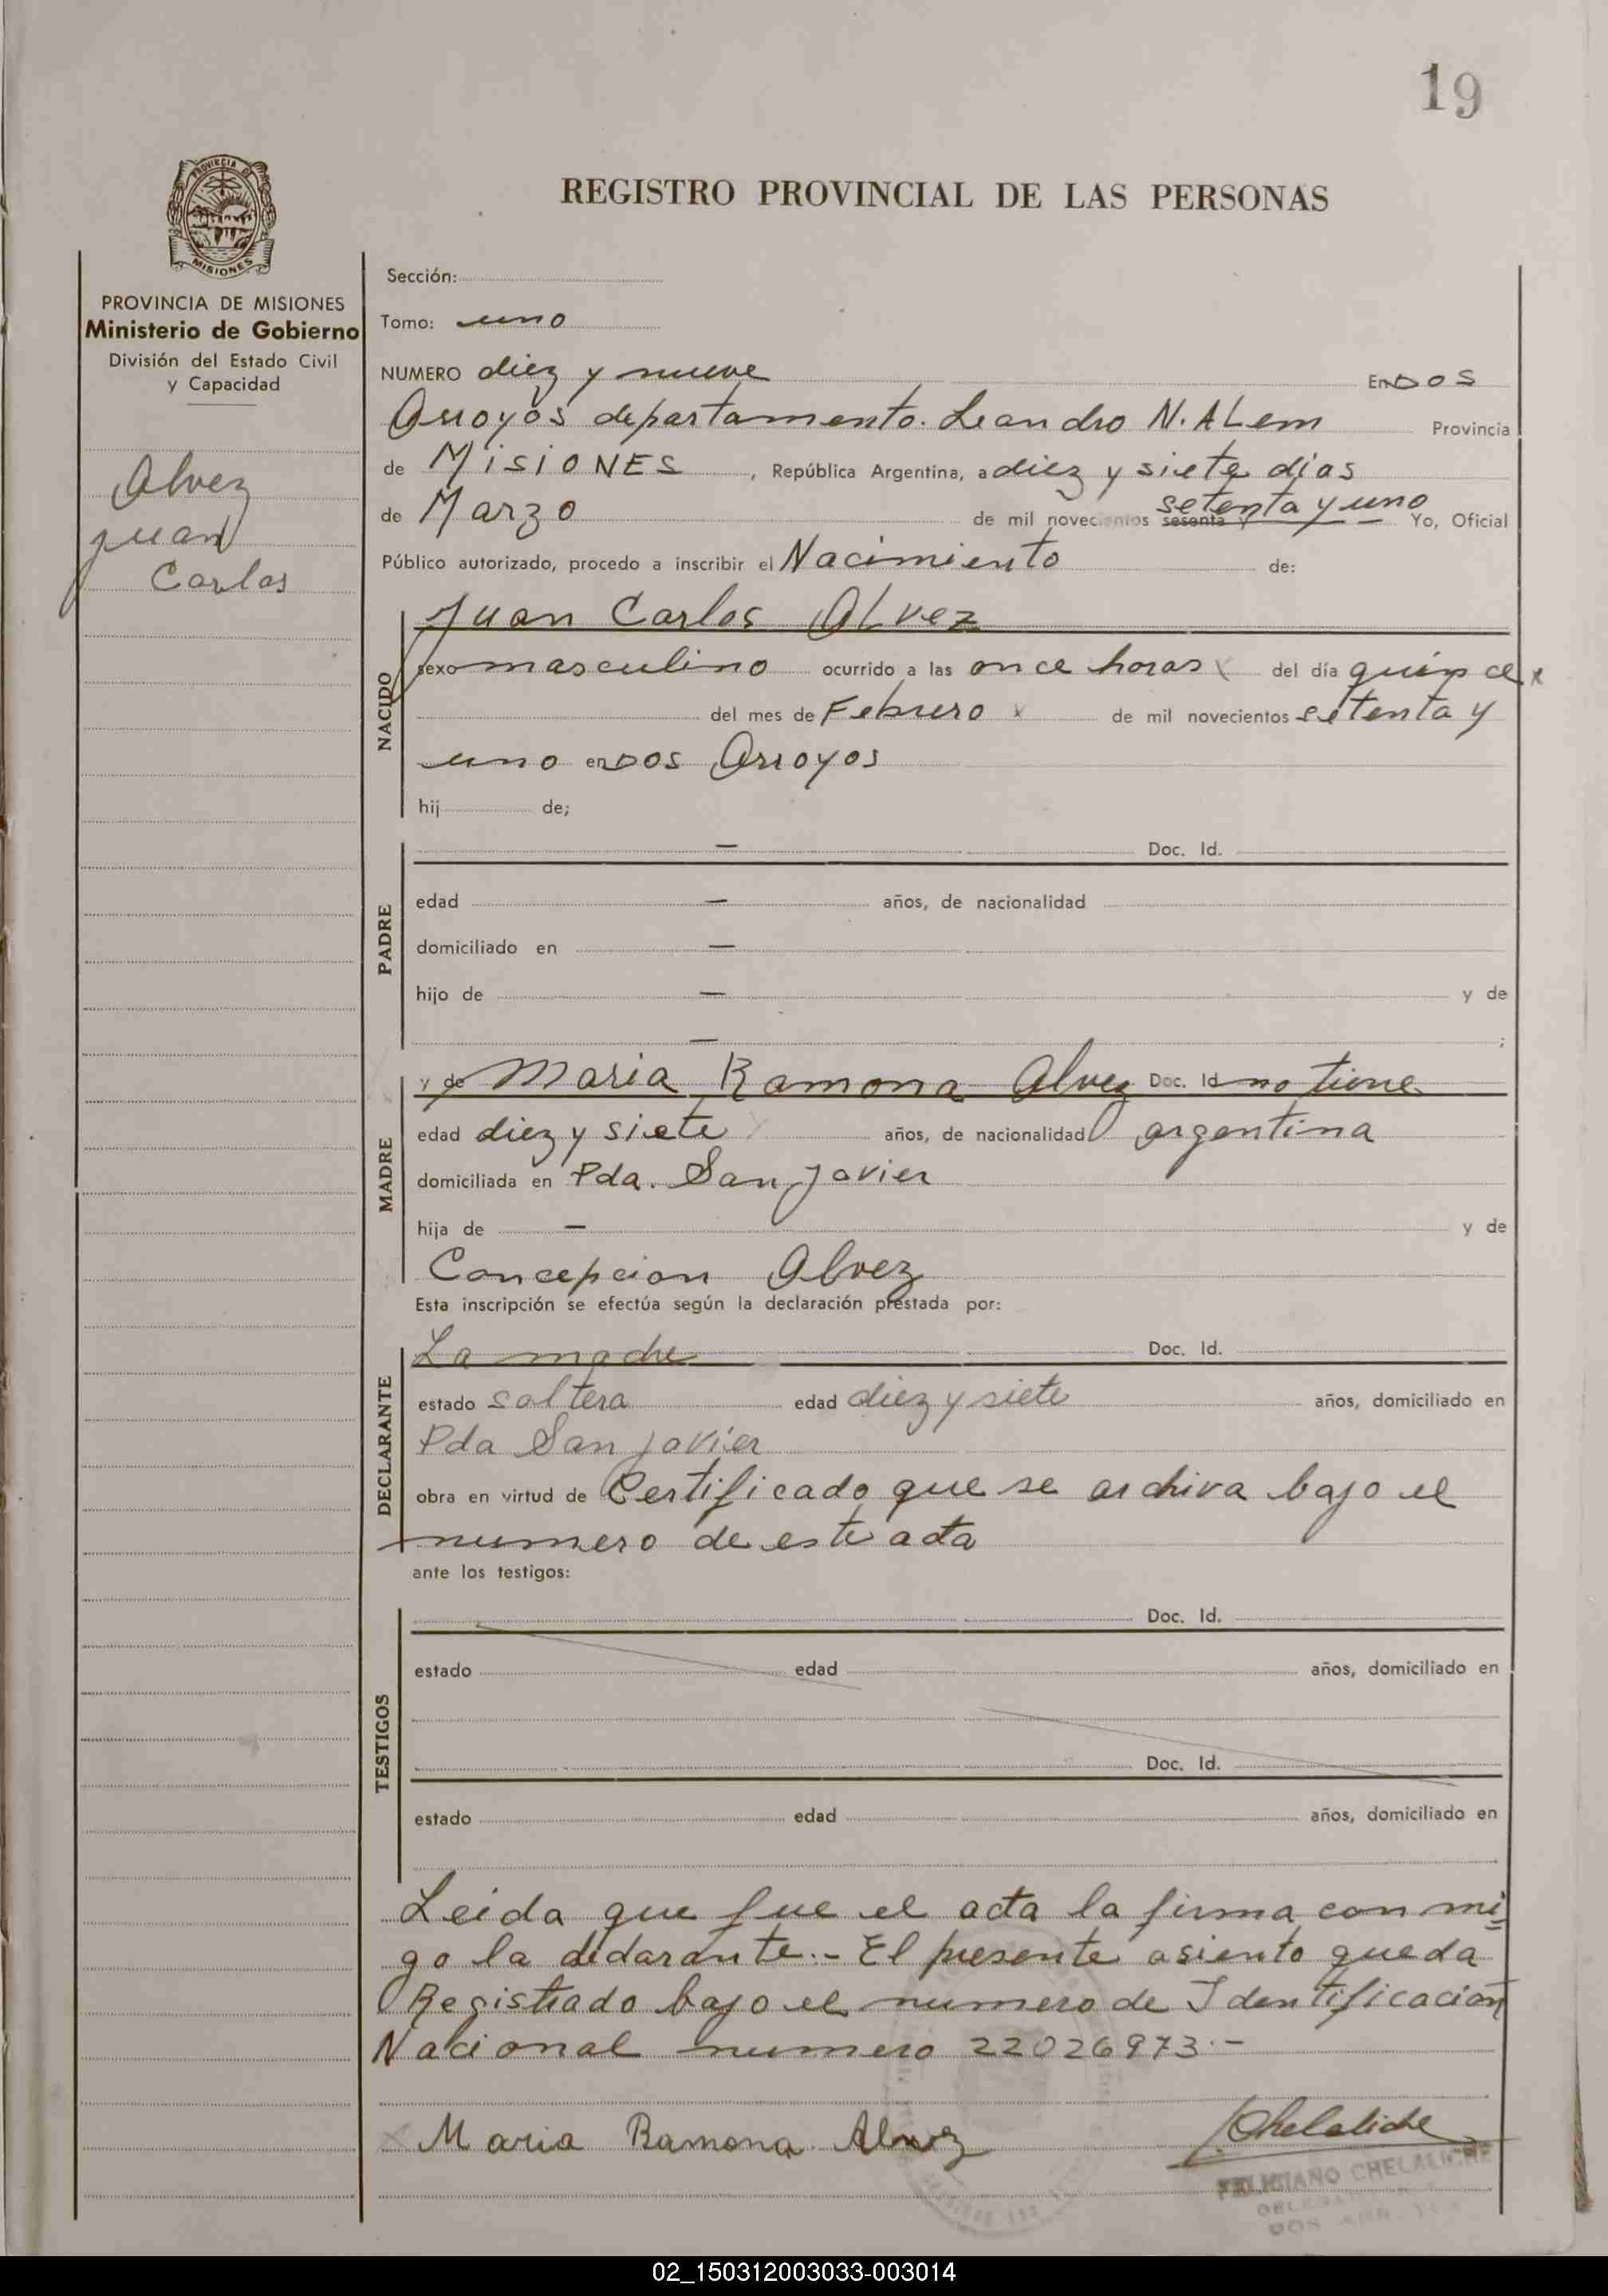 19
REGISTRO PROVINCIAL DE LAS PERSONAS
PROVINCIA DE MISIONES
Ministerio de Gobierno
División del Estado Civil
y Capacidad
Alvez
Juan
Carlos
Sección:
Tomo: uno
NUMERO diez y nueve En DOS
Arroyos departamento. Leandro N. ALem Provincia
de MisiONES, República Argentina, a diez y siete días
de Marzo de mil novecientos sesenta y setenta y uno Yo, Oficial
Público autorizado, procedo a inscribir el Nacimiento de:
NACIDO
Juan Carlos ALvez
sexo masculino ocurrido a las once horas x del día quince x
del mes de Febrero x de mil novecientos setenta y
uno en DOS Arroyos
hij de;
PADRE
— Doc. Id.
edad — años, de nacionalidad
domiciliado en —
hijo de — y de
— ;
MADRE
y de Maria Ramona Alvez Doc. Id no tiene
edad diez y siete años, de nacionalidad argentina
domiciliada en Pda. San Javier
hija de — y de
Concepcion Alvez
Esta inscripción se efectúa según la declaración prestada por:
DECLARANTE
La madre Doc. Id.
estado soltera edad diez y siete años, domiciliado en
Pda San Javier
obra en virtud de Certificado que se archiva bajo el
numero de este acta
ante los testigos:
TESTIGOS
Doc. Id.
estado edad años, domiciliado en
Doc. Id.
estado edad años, domiciliado en
Leida que fue el acta la firma con mi
go la didarante.- El presente asiento queda
Registrado bajo el numero de Identificacion
Nacional numero 22026973.-
x Maria Ramona Alvez
Chelaliche
FELICIANO CHELALICHE
02_150312003033-003014